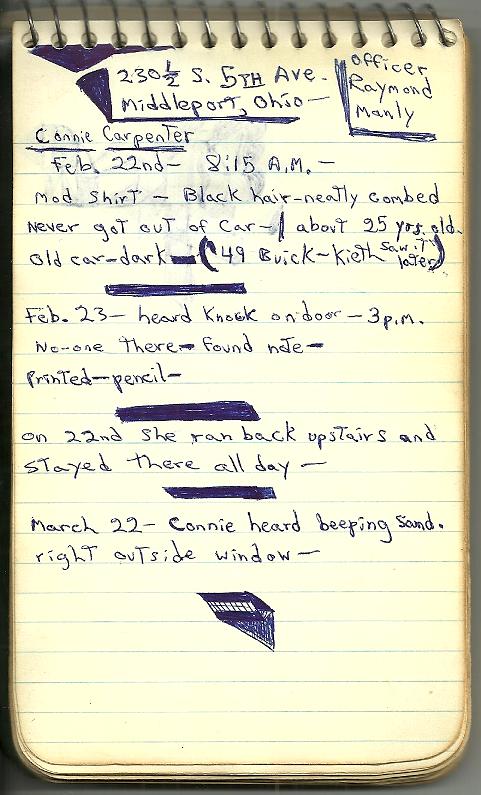 230½ S. 5TH Ave.
Middleport, Ohio—
Officer
Raymond
Manly
Connie Carpenter
Feb. 22nd— 8:15 A.M.—
Mod Shirt — Black hair-neatly combed
Never got out of Car— about 25 yrs. old.
Old car-dark— ('49 Buick—Kieth saw it later)
Feb. 23— heard Knock on door — 3 p.m.
No-one there— Found note—
Printed—pencil—
on 22nd she ran back upstairs and
stayed there all day —
March 22— Connie heard beeping sand.
right outside window—